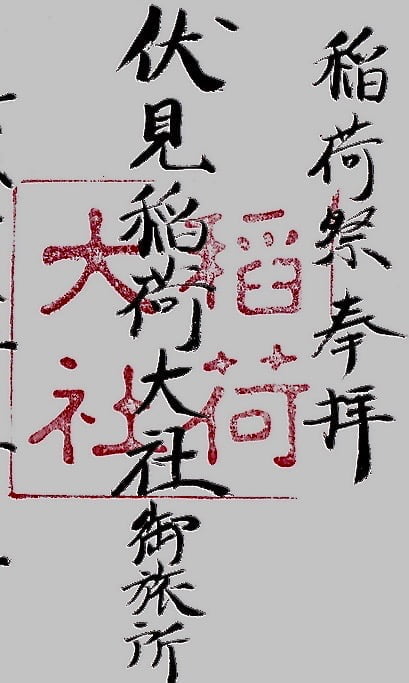 稲荷祭奉拝
伏見稲荷大社御旅所
稲荷
大社